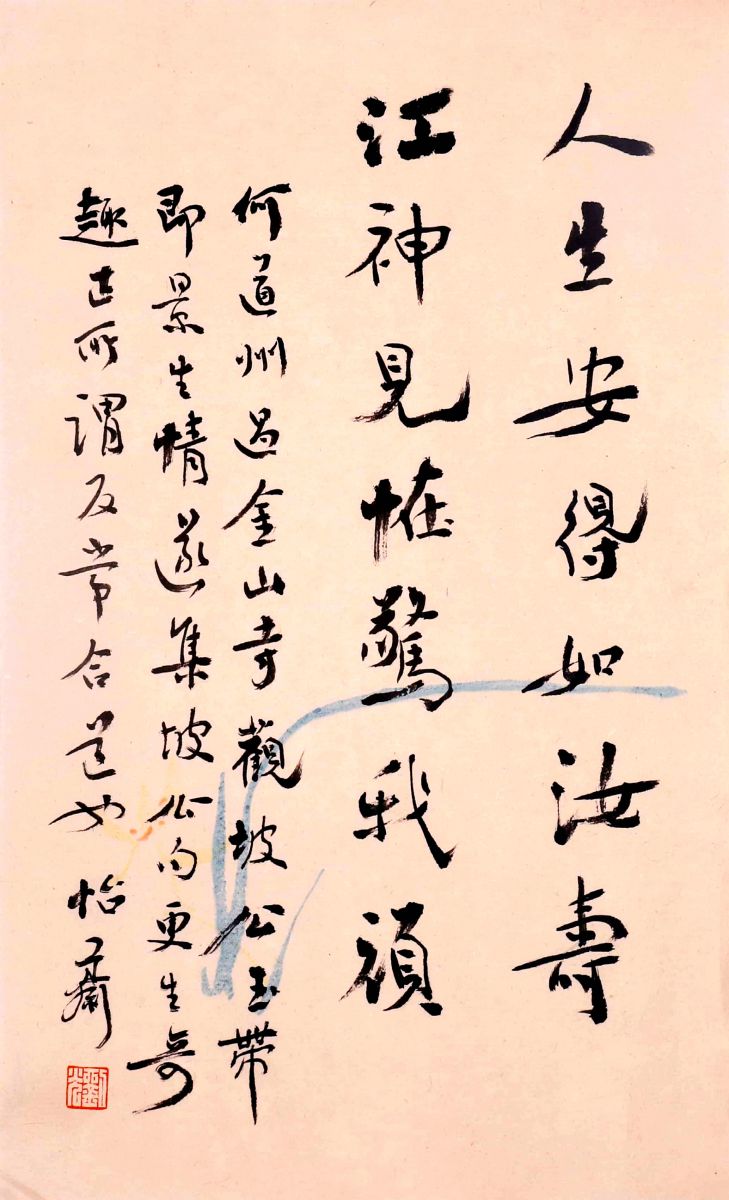 人生安得如汝壽
江神見怪驚我頑
何道州過金山寺觀坡公玉帶
即景生情遂集坡公句更生奇
趣正所謂反常合道也 怡齋